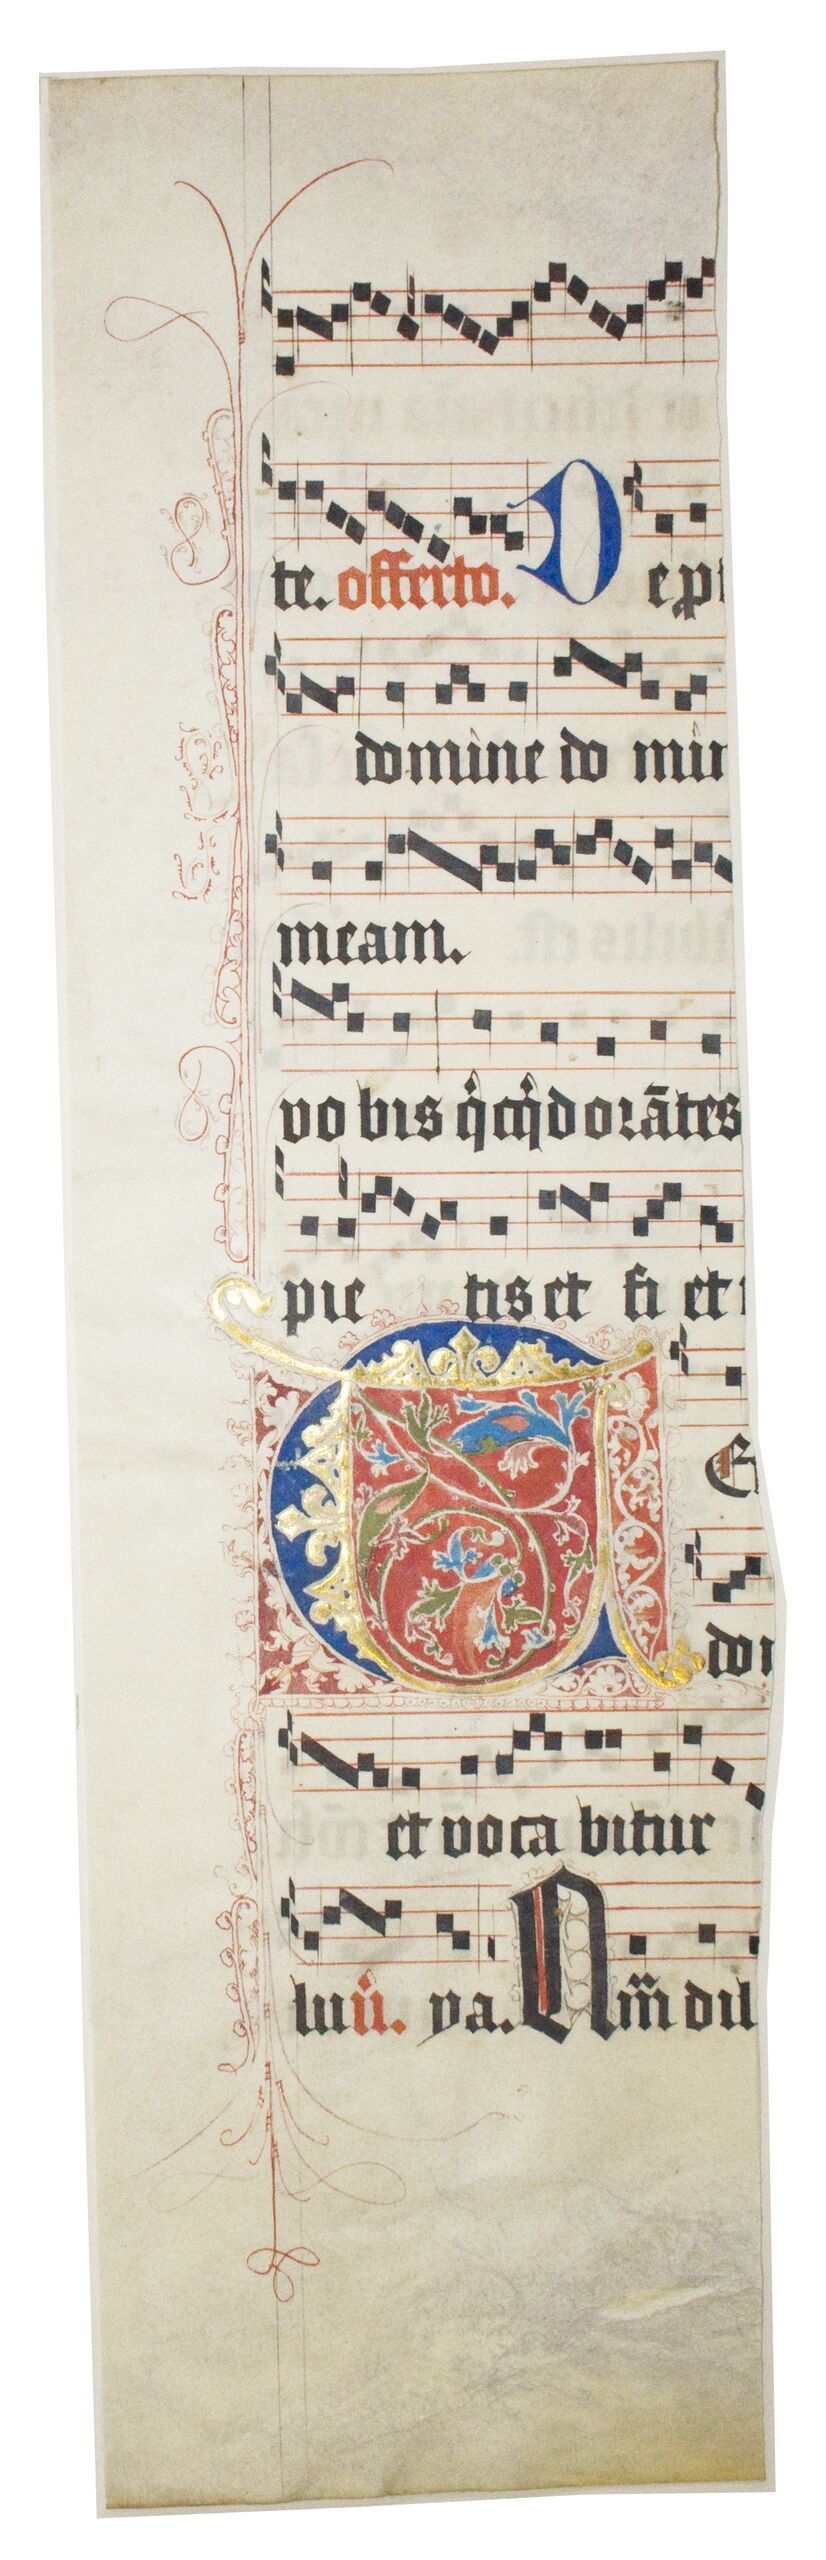 te. offerto. De p
domine do min
meam.
vobis qicqid orātes
pie tis et fi et
E
do
et voca bitur
luii. ya. Am̄ dil